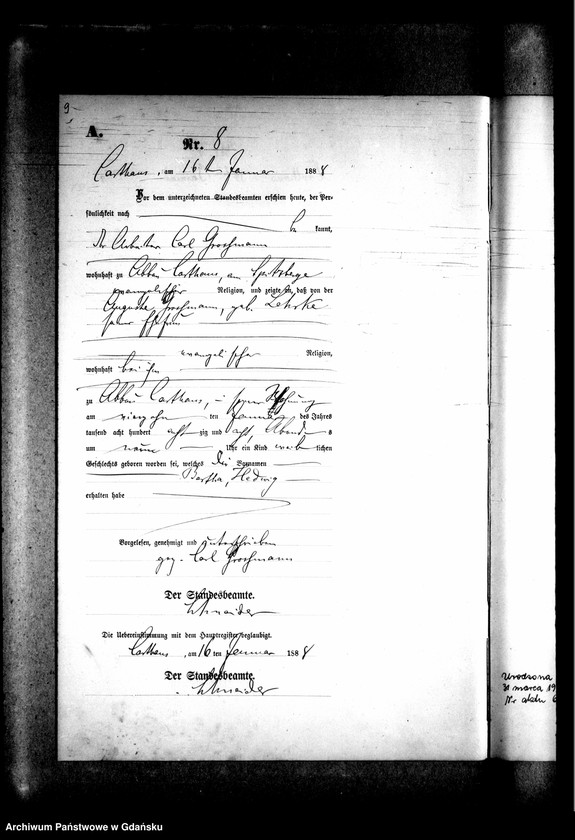 9
A.
Nr. 8
Carthaus, am 16 ten Januar 1888
Vor dem unterzeichneten Standesbeamten erschien heute, der Per-
sönlichkeit nach
be kannt,
der Arbeiter Carl Grossmann
wohnhaft zu Abbau Carthaus, am
evangelischer Religion, und zeigte an, daß von der
Auguste Grossmann, geb.
seiner Ehefrau
evangelischer Religion,
wohnhaft bei ihm
zu Abbau Carthaus, in seiner Wohnung
am vierzehn ten Januar des Jahres
tausend acht hundert acht zig und acht, Abends
um neun Uhr ein Kind weib lichen
Geschlechts geboren worden sei, welches die Vornamen
Bertha, Hedwig
erhalten habe
Vorgelesen, genehmigt und unterschrieben
gez. Carl Grossmann
Der Standesbeamte.
Schneider
Die Uebereinstimmung mit dem Hauptregister beglaubigt.
Carthaus, am 16 ten Januar 1888
Der Standesbeamte.
Schneider
Urodzona
31 marca 19
Nr aktu 6
Archiwum Państwowe w Gdańsku